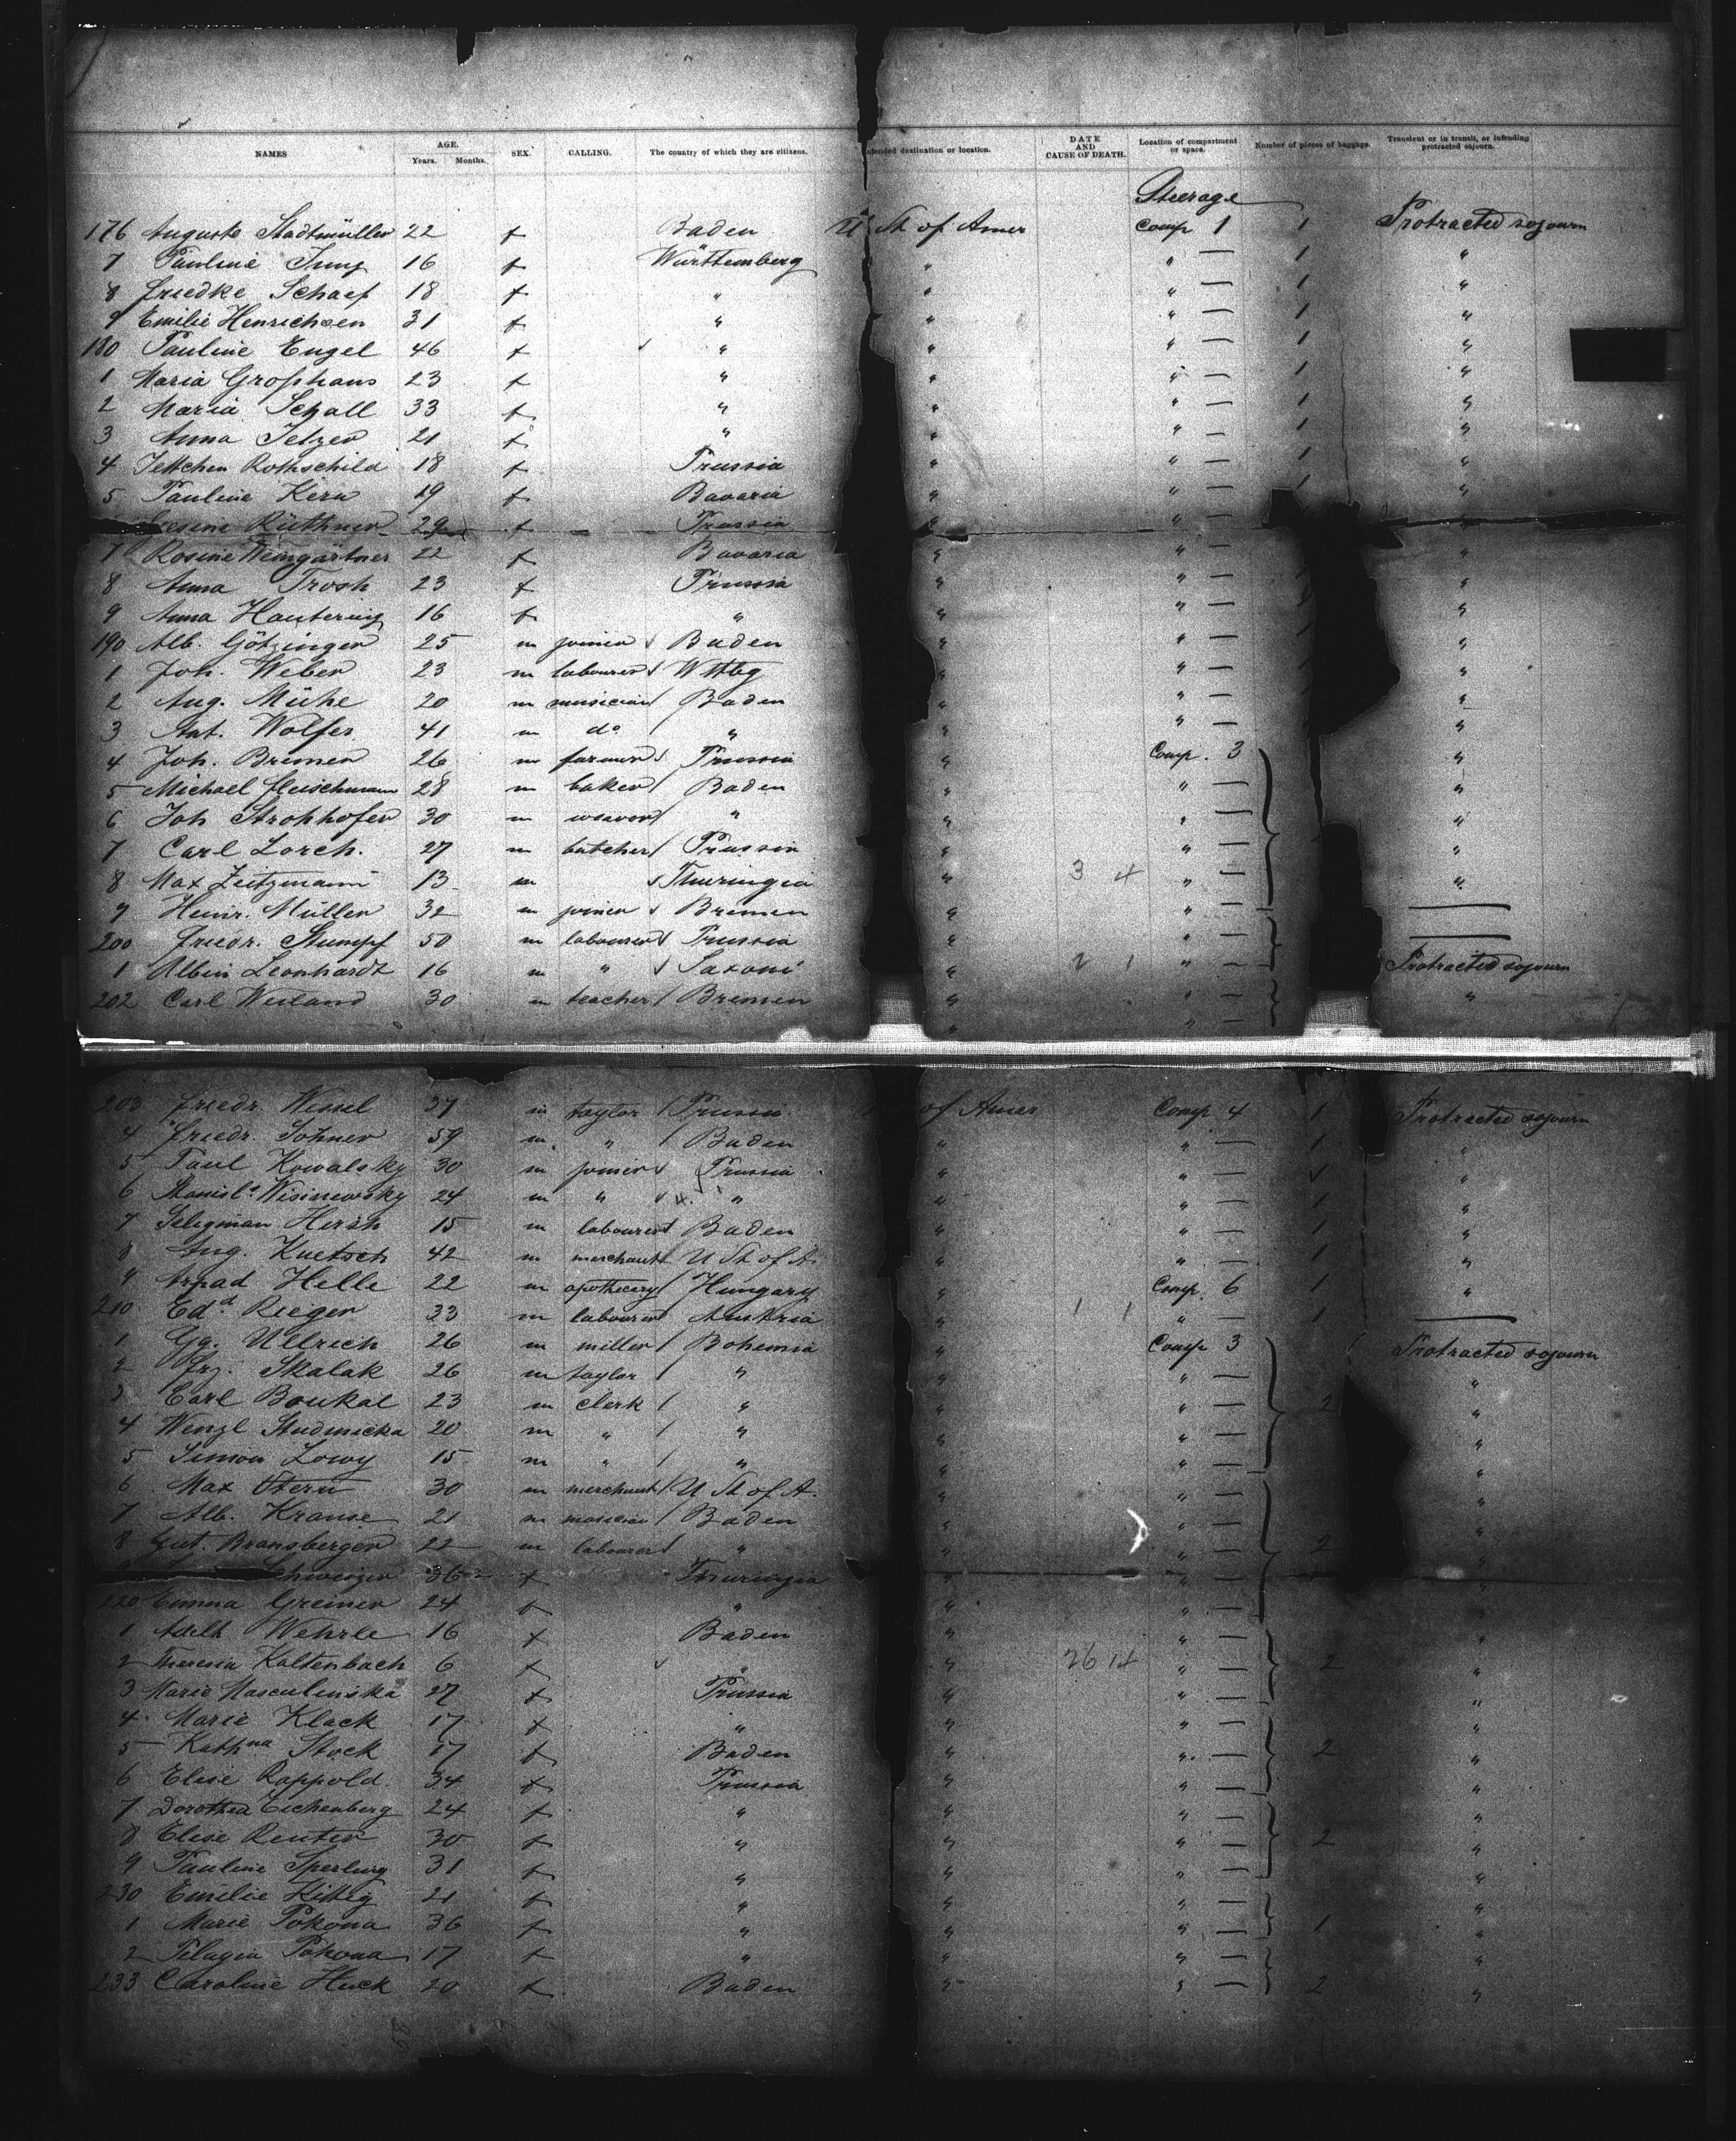 NAMES AGE. Years. Months. SEX. CALLING. The country of which they are citizens. destination or location. DATE AND CAUSE OF DEATH. Location of compartment or space. Number of pieces of baggage Transient or in transit, or intending protracted sojourn.
Steerage
176 Auguste Stadtmüller 22 f Baden U St of Amer Comp 1 1 Protracted sojourn
7 Pauline Jung 16 f Württemberg " " — 1 "
8 Friedke Schaef 18 f " " " — 1 "
9 Emilie Henrichsen 31 f " " " — 1 "
180 Pauline Engel 46 f " " " — 1 "
1 Maria Groshans 23 f " " " — 1 "
2 Maria Schall 33 f " " " — 1 "
3 Anna Jetzer 21 f " " " — 1 "
4 Jettchen Rothschild 18 f Prussia " " — 1 "
5 Pauline Kern 19 f Bavaria " " — 1 "
Rüthner 29 f Prussia " " —
7 Rosine Weingärtner 22 f Bavaria " " — "
8 Anna Trosh 23 f Prussia " " — "
9 Anna 16 f " " " — "
190 Alb. Götzinger 25 m joiner Baden " " — "
1 Joh. Weber 23 m labourer Wttbg " " — "
2 Aug. Mühe 20 m musician Baden " " — "
3 Ant. Wolfer 41 m do " " " — "
4 Joh. Bremer 26 m farmer Prussia " Comp. 3 "
5 Michael Fleischmann 28 m baker Baden " " — "
6 Joh Strohhofer 30 m weaver " " " — "
7 Carl Lorch. 27 m butcher Prussia " " — "
8 Max Zeitzmann 13 m Thuringia " 3 4 " — "
9 Heinr. Müller 32 m joiner Bremen " " — —
200 Friedr. Stumpf 50 m labourer Prussia " " — —
1 Albin Leonhardt 16 m " Saxoni " 2 1 " — Protracted sojourn
202 Carl Weiland 30 m teacher Bremen " " — "
" " —
203 Friedr. Wessel 37 m taylor Prussia of Amer Comp 4 1 Protracted sojourn
4 Friedr. Sohner 59 m " Baden " " — 1 "
5 Paul Kowalsky 30 m joiner Prussia " " — 1 "
6 Stanisl. Wisinewsky 24 m " " " " — 1 "
7 Seligman Hersh 15 m labourer Baden " " — 1 "
8 Aug. Kuetsch 42 m merchant U St of A. " " — 1 "
9 Arpad Helle 22 m apothecary Hungary " Comp. 6 1 "
210 Edd. Rieger 33 m labourer Austria " 1 1 " — 1 —
1 Gg. Ullrich 26 m miller Bohemia " Comp 3 Protracted sojourn
2 Frz. Skalak 26 m taylor " " " — "
3 Carl Boukal 23 m clerk " " " — 2 "
4 Wenzl Studnicka 20 m " " " " — "
5 Simon Lowy 15 m " " " " — "
6 Max Stern 30 m merchant U St of A. " " — "
7 Alb. Krause 21 m Baden " " — "
8 Gut. Bransberger 22 m labourer " " " — 2 "
36 f Thuringia " " — "
220 Emma Greiner 24 f " " " — "
1 Adelh Wehrle 16 f Baden " " — "
2 Theresia Kaltenbach 6 f " " 26 14 " — 2 "
3 Marie Masculinska 27 f Prussia " " — "
4 Marie Klack 17 f " " " — "
5 Kathna Stock 17 f Baden " " — 2 "
6 Elise Rappold 34 f Prussia " " — "
7 Dorothea Eichenberg 24 f " " " — "
8 Elise Reuter 30 f " " " — 2 "
9 Pauline Sperling 31 f " " " — "
230 Emilie Kittig 21 f " " " — "
1 Marie Pokona 36 f " " " — 1 "
2 Pelagia Pokona 17 f " " " — "
233 Caroline Huck 20 f Baden " " — 2 "